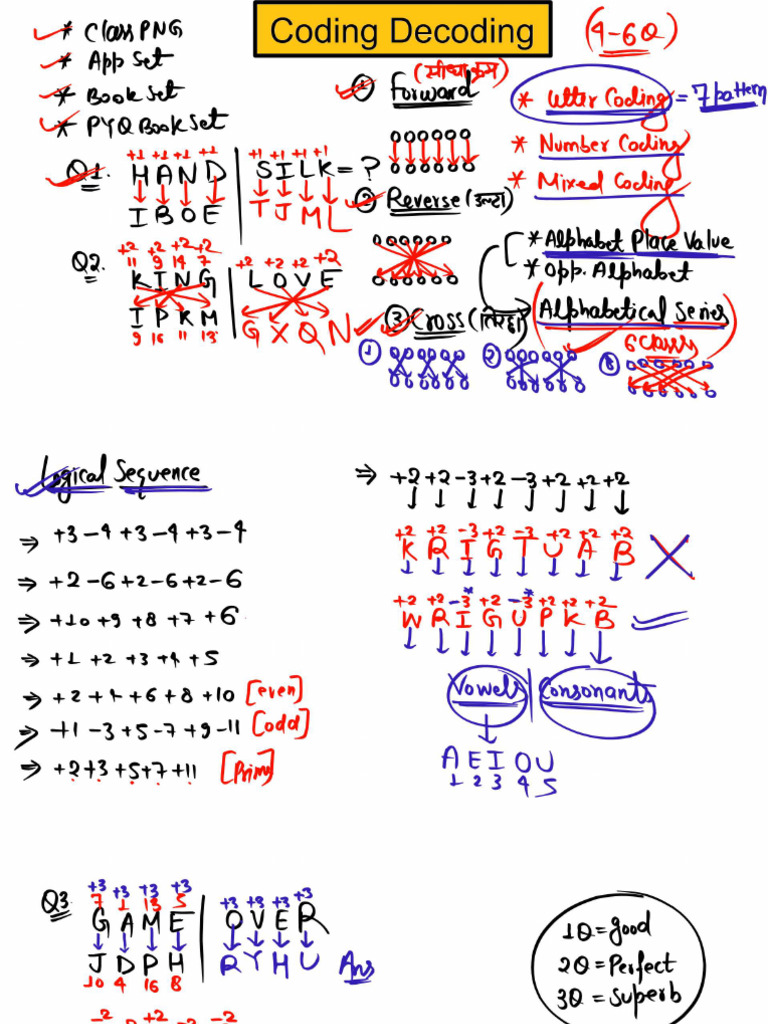 Coding Decoding
(4-6Q)
* Class PNG
* App Set
* Book Set
* PYQ Book Set
① Forward (सीधा क्रम)
* Letter Coding = 7 pattern
* Number Coding
* Mixed Coding
Q1.
+1 +1 +1 +1 | +1 +1 +1 +1
HAND | SILK = ?
IBOE | TJML
② Reverse (उल्टा)
* Alphabet Place Value
* Opp. Alphabet
Alphabetical Series
6 Class
Q2.
+2 +2 +2 +2 | +2 +2 +2 +2
11 9 14 7
KING | LOVE
IPKM | GXQN
9 16 11 13
③ Cross (तिरछा)
① ② ③
Logical Sequence
⇒ +3 -4 +3 -4 +3 -4
⇒ +2 -6 +2 -6 +2 -6
⇒ +10 +9 +8 +7 +6
⇒ +1 +2 +3 +4 +5
⇒ +2 +4 +6 +8 +10 [even]
⇒ +1 -3 +5 -7 +9 -11 [odd]
⇒ +2 +3 +5 +7 +11 [Prime]
⇒ +2 +2 -3 +2 -3 +2 +2 +2
+2 +2 -3 +2 -3 +2 +2 +2
K R I G T U A B
+2 +2 -3 +2 -3 +2 +2 +2
W R I G U P K B
Vowels | Consonants
A E I O U
1 2 3 4 5
Q3
+3 +3 +3 +3 | +3 +3 +3 +3
7 1 13 5
GAME | OVER
JDPH | RYHU Ans
10 4 16 8
1Q = good
2Q = Perfect
3Q = Superb